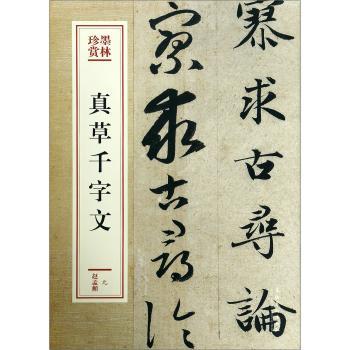 墨林
珍赏
真草千字文
元
赵孟頫
寥求古尋論
寥求古尋論